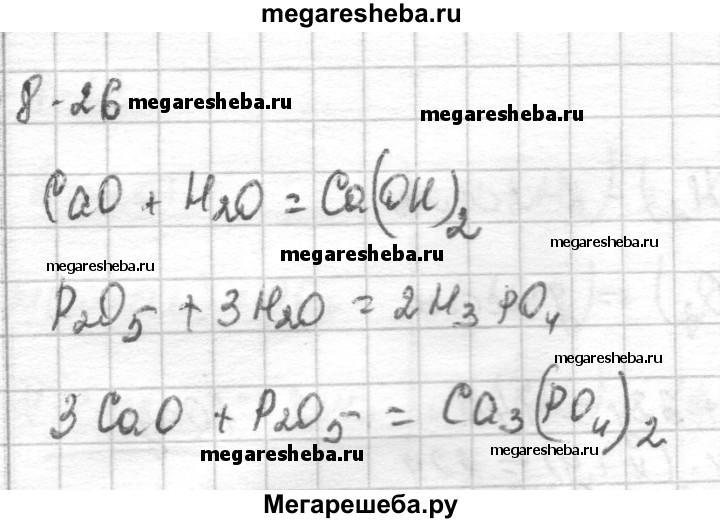 megaresheba.ru
8-26 megaresheba.ru
megaresheba.ru
CaO + H2O = Ca(OH)2
megaresheba.ru
megaresheba.ru
megaresheba.ru
P2O5 + 3H2O = 2H3PO4
megaresheba.ru
3CaO + P2O5 = Ca3(PO4)2
megaresheba.ru
megaresheba.ru
Мегарешеба.ру